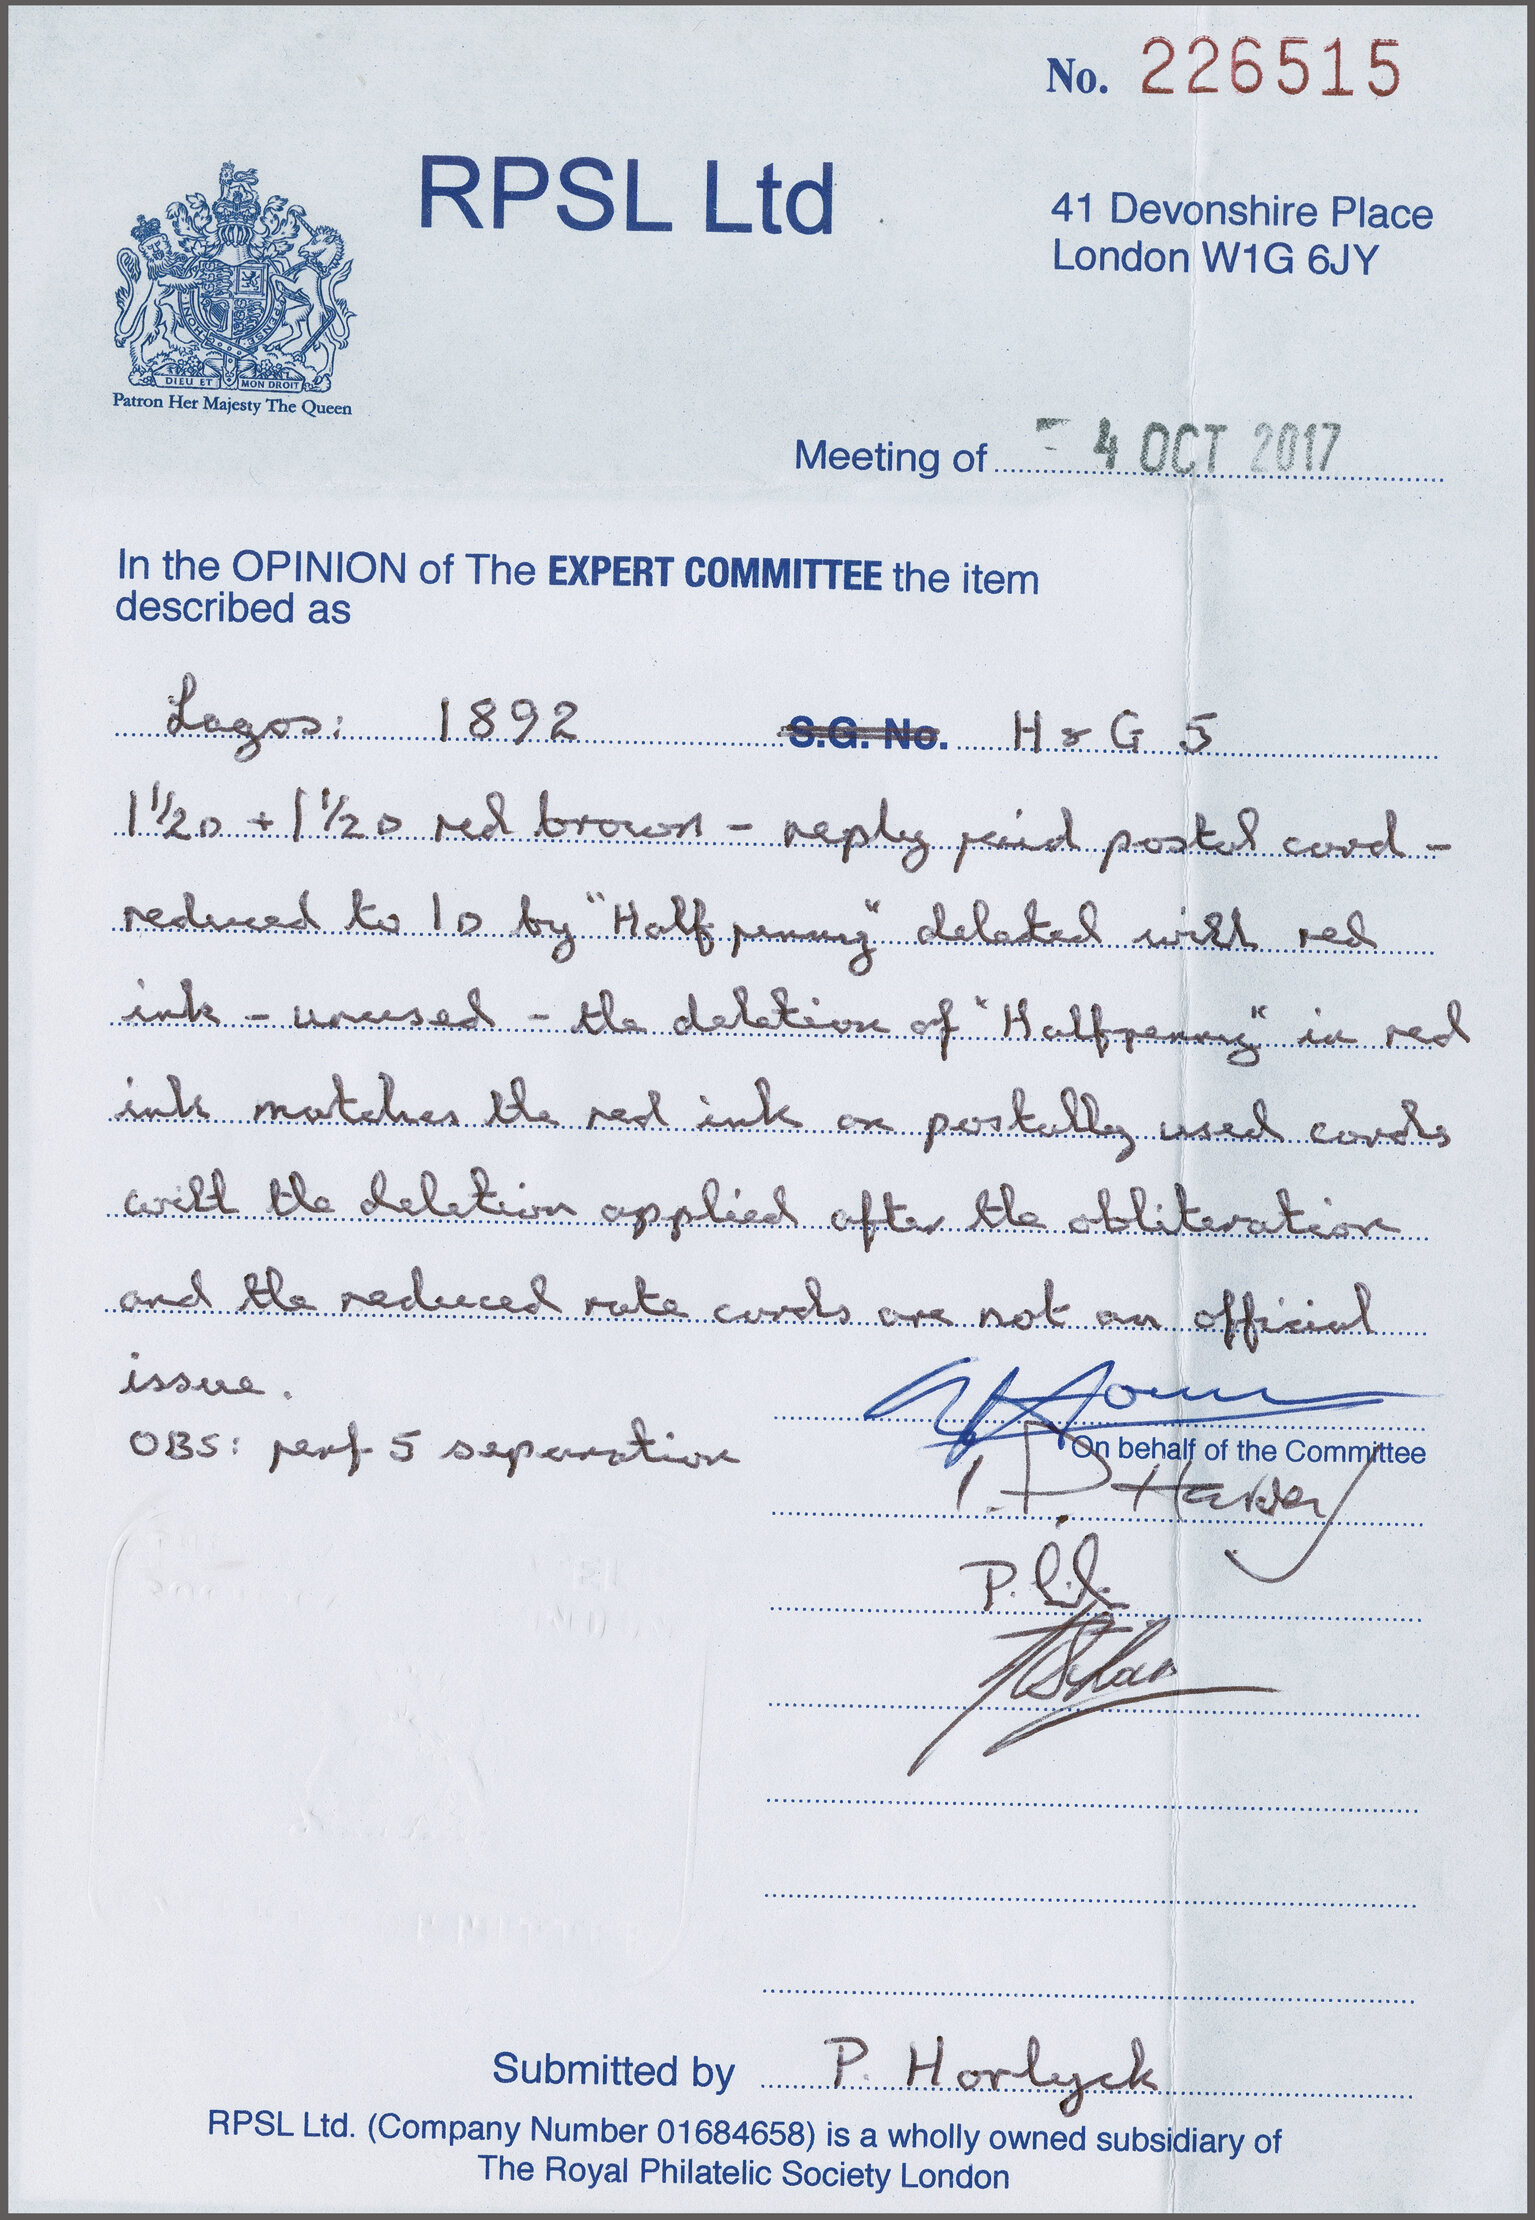 No. 226515
RPSL Ltd
41 Devonshire Place
London W1G 6JY
DIEU ET MON DROIT
Patron Her Majesty The Queen
Meeting of - 4 OCT 2017
In the OPINION of The EXPERT COMMITTEE the item
described as
Lagos: 1892 S.G. No. H & G 5
1 1/2D + 1 1/2D red brown - reply paid postal card -
reduced to 1D by "Half penny" deleted with red
ink - unused - the deletion of "Halfpenny" in red
ink matches the red ink on postally used cards
with the deletion applied after the obliteration
and the reduced rate cards are not an official
issue.
OBS: perf 5 separation
On behalf of the Committee
Submitted by P. Horlyck
RPSL Ltd. (Company Number 01684658) is a wholly owned subsidiary of
The Royal Philatelic Society London